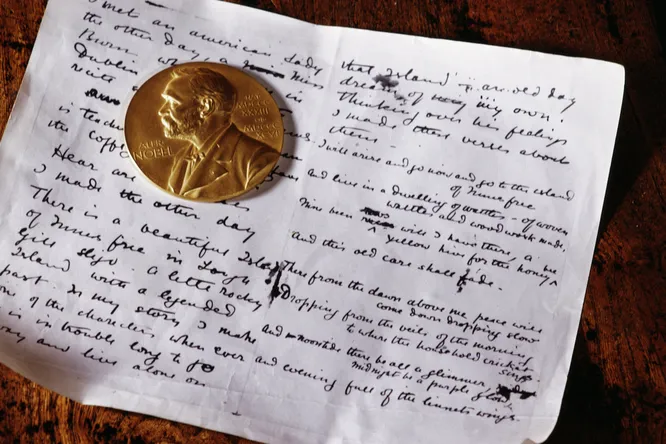 I met an american lady
the other day a Miss
Dublin
in
is
the
Hear are
I made the other day
There is a beautiful Island
of Innis free in Lough
Gill Sligo. A little rocky
Island with a legended
past. In my story I make
one of the charecters when ever
he is in trouble long to go
away and live alone on
that Island — an old day
dream of my own.
Thinking over his feelings
I made these verses about
them —
I will arise and go now and go to the island
of Innis free
And live in a dwelling of wattles — of woven
wattles and wood work made,
Nine bean rows will I have there, a
yellow hive for the honey bee
And this old care shall fade.
There from the dawn above me peace will
come down dropping slow
Dropping from the veils of the morning
to where the household cricket sings.
And noontide there be all a glimmer,
midnight be a purple glow,
and evening full of the linnets wings.
ALFR.
NOBEL